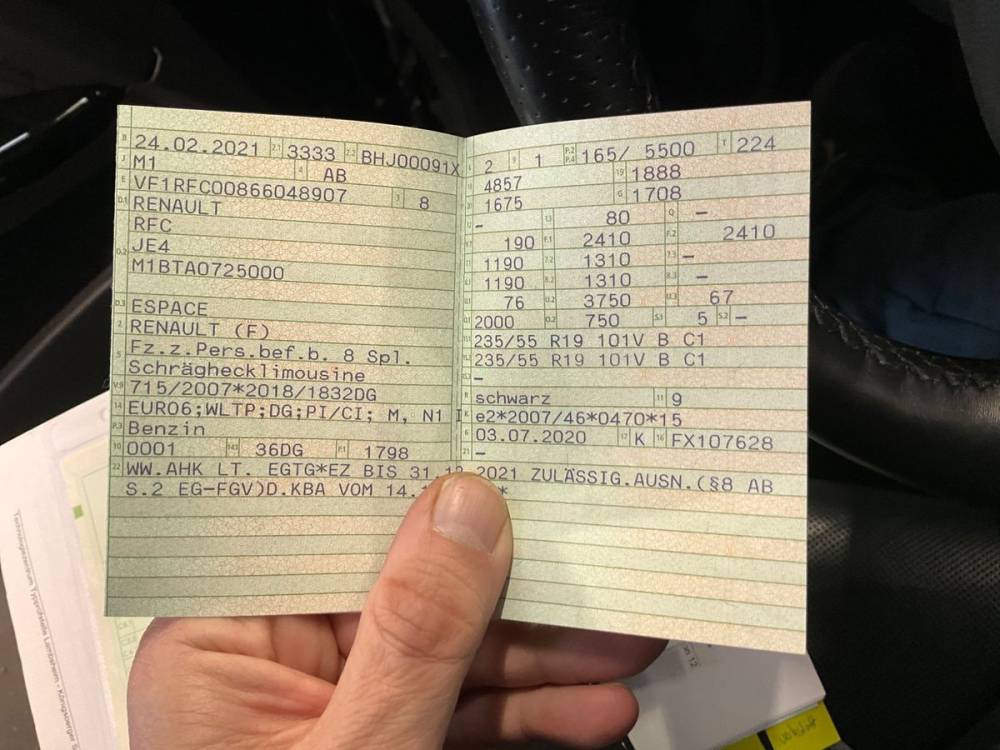 B 24.02.2021 2.1 3333 2.2 BHJ00091X
J M1 4 AB
E VF1RFC00866048907 3 8
D.1 RENAULT
RFC
D.2 JE4
M1BTA0725000
D.3 ESPACE
2 RENAULT (F)
Fz.z.Pers.bef.b. 8 Spl.
5 Schräghecklimousine
V.9 715/2007*2018/1832DG
14 EURO6;WLTP;DG;PI/CI; M, N1 I
P.3 Benzin
10 0001 14.1 36DG P.1 1798
22 WW.AHK LT. EGTG*EZ BIS 31.12.2021 ZULÄSSIG.AUSN.(§8 AB
S.2 EG-FGV)D.KBA VOM 14.1 *
2 9 1 P.2 P.4 165/ 5500 T 224
4857 19 1888
1675 G 1708
– 13 80 Q –
190 F.1 2410 F.2 2410
1190 7.2 1310 7.3 –
1190 8.2 1310 8.3 –
76 U.2 3750 U.3 67
O.1 2000 O.2 750 S.1 5 S.2 –
235/55 R19 101V B C1
235/55 R19 101V B C1
–
R schwarz 11 9
K e2*2007/46*0470*15
6 03.07.2020 17 K 16 FX107628
21 –